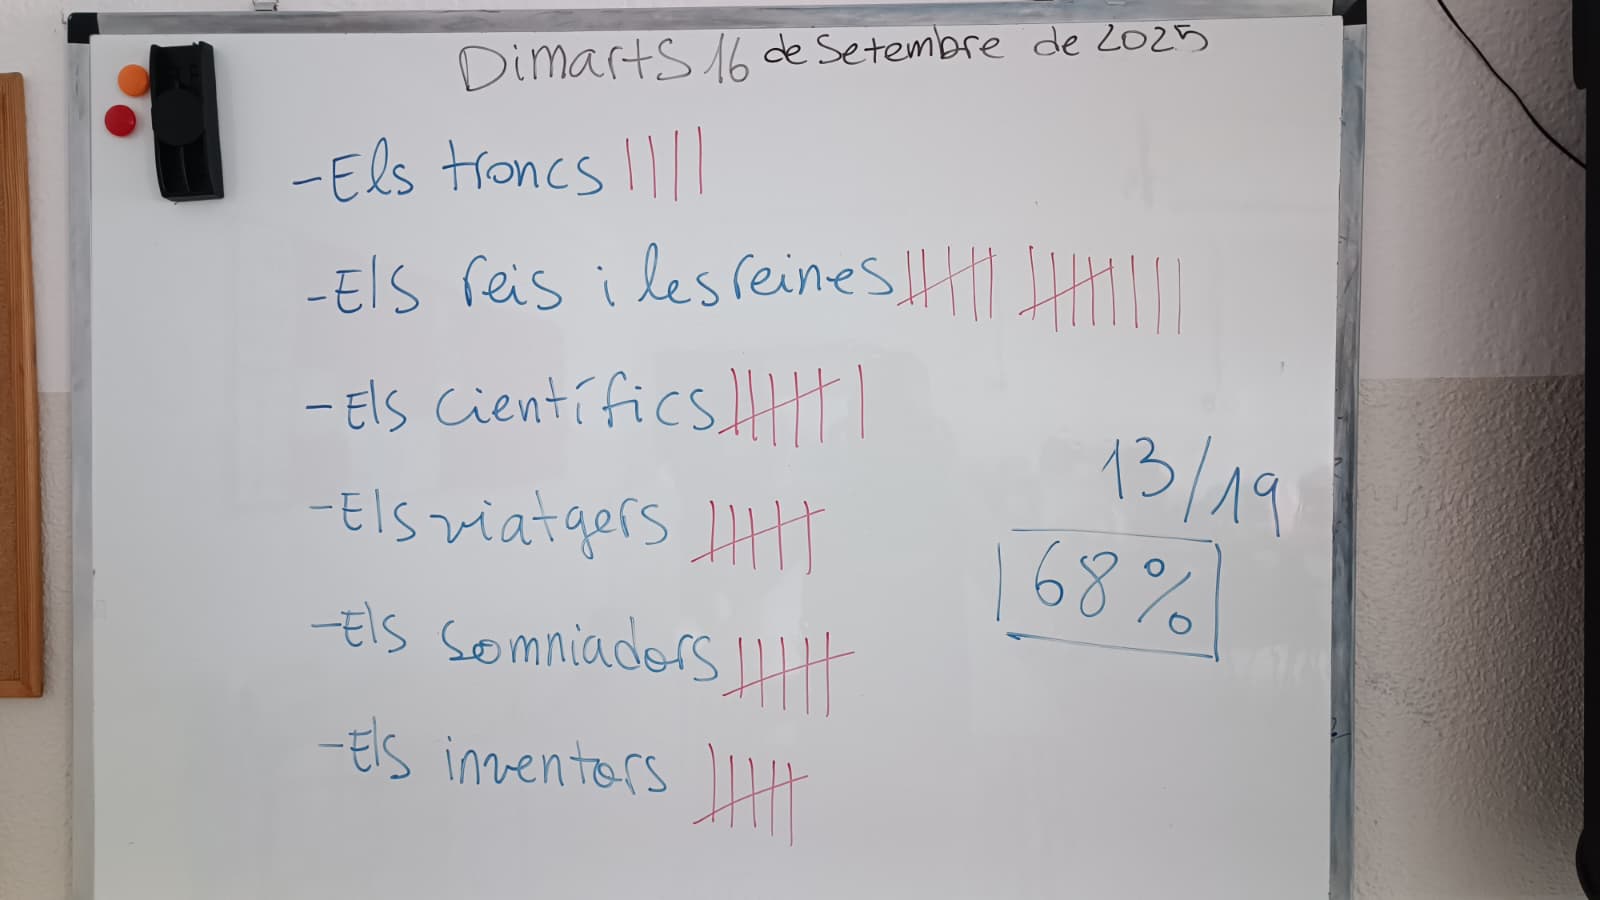 Dimarts 16 de Setembre de 2025
- Els troncs
- Els reis i les reines
- Els científics
- Els viatgers
- Els somniadors
- Els inventors
13/19
68%